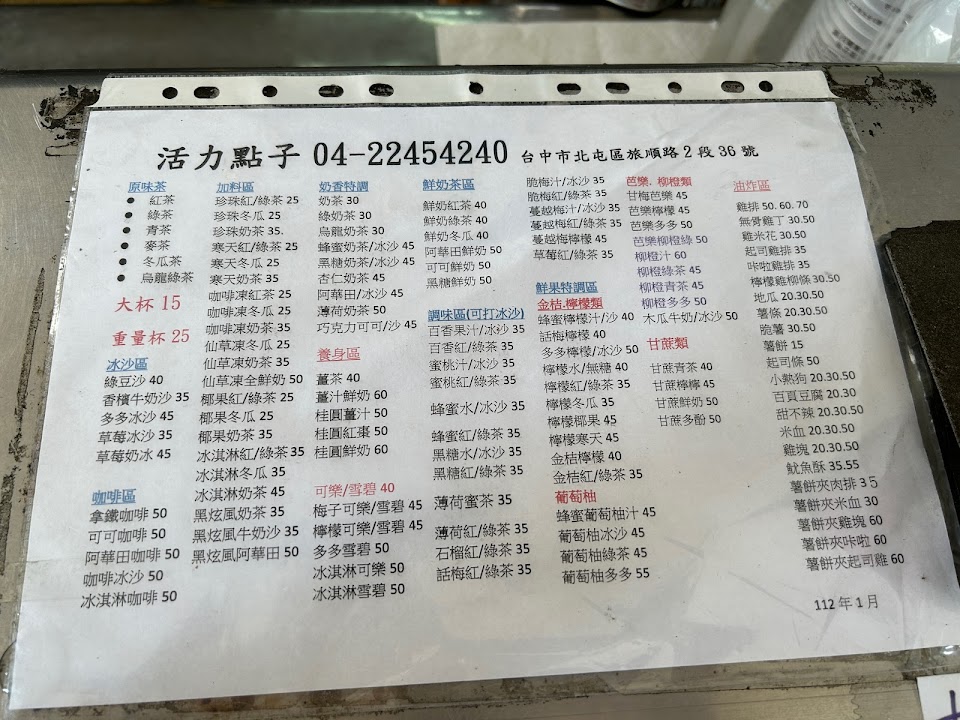 活力點子 04-22454240 台中市北屯區旅順路2段36號
原味茶
紅茶
綠茶
青茶
麥茶
冬瓜茶
烏龍綠茶
大杯 15
重量杯 25
冰沙區
綠豆沙 40
香檳牛奶沙 35
多多冰沙 45
草莓冰沙 35
草莓奶冰 45
咖啡區
拿鐵咖啡 50
可可咖啡 50
阿華田咖啡 50
咖啡冰沙 50
冰淇淋咖啡 50
加料區
珍珠紅/綠茶 25
珍珠冬瓜 25
珍珠奶茶 35.
寒天紅/綠茶 25
寒天冬瓜 25
寒天奶茶 35
咖啡凍紅茶 25
咖啡凍冬瓜 25
咖啡凍奶茶 35
仙草凍冬瓜 25
仙草凍奶茶 35
仙草凍全鮮奶 50
椰果紅/綠茶 25
椰果冬瓜 25
椰果奶茶 35
冰淇淋紅/綠茶 35
冰淇淋冬瓜 35
冰淇淋奶茶 45
黑炫風奶茶 35
黑炫風牛奶沙 35
黑炫風阿華田 50
奶香特調
奶茶 30
綠奶茶 30
烏龍奶茶 30
蜂蜜奶茶/冰沙 45
黑糖奶茶/冰沙 45
杏仁奶茶 45
阿華田/冰沙 45
薄荷奶茶 50
巧克力可可/沙 45
養身區
薑茶 40
薑汁鮮奶 60
桂圓薑汁 50
桂圓紅棗 50
桂圓鮮奶 60
可樂/雪碧 40
梅子可樂/雪碧 45
檸檬可樂/雪碧 45
多多雪碧 50
冰淇淋可樂 50
冰淇淋雪碧 50
鮮奶茶區
鮮奶紅茶 40
鮮奶綠茶 40
鮮奶冬瓜 40
阿華田鮮奶 50
可可鮮奶 50
黑糖鮮奶 50
調味區(可打冰沙)
百香果汁/冰沙 35
百香紅/綠茶 35
蜜桃汁/冰沙 35
蜜桃紅/綠茶 35
蜂蜜水/冰沙 35
蜂蜜紅/綠茶 35
黑糖水/冰沙 35
黑糖紅/綠茶 35
薄荷蜜茶 35
薄荷紅/綠茶 35
石榴紅/綠茶 35
話梅紅/綠茶 35
脆梅汁/冰沙 35
脆梅紅/綠茶 35
蔓越梅汁/冰沙 35
蔓越梅紅/綠茶 35
蔓越梅檸檬 45
草莓紅/綠茶 35
鮮果特調區
金桔.檸檬類
蜂蜜檸檬汁/沙 40
話梅檸檬 40
多多檸檬/冰沙 50
檸檬水/無糖 40
檸檬紅/綠茶 35
檸檬冬瓜 35
檸檬椰果 45
檸檬寒天 45
金桔檸檬 40
金桔紅/綠茶 35
葡萄柚
蜂蜜葡萄柚汁 45
葡萄柚冰沙 45
葡萄柚綠茶 45
葡萄柚多多 55
芭樂. 柳橙類
甘梅芭樂 45
芭樂檸檬 45
芭樂多多 50
芭樂柳橙綠 50
柳橙汁 60
柳橙綠茶 45
柳橙青茶 45
柳橙多多 50
木瓜牛奶/冰沙 50
甘蔗類
甘蔗青茶 40
甘蔗檸檸 45
甘蔗鮮奶 50
甘蔗多酚 50
油炸區
雞排 50. 60. 70
無骨雞丁 30.50
雞米花 30.50
起司雞排 35
咔啦雞排 35
檸檬雞柳條 30.50
地瓜 20.30.50
薯條 20.30.50
脆薯 30.50
薯餅 15
起司條 50
小熱狗 20.30.50
百頁豆腐 20.30
甜不辣 20.30.50
米血 20.30.50
雞塊 20.30.50
魷魚酥 35.55
薯餅夾肉排 35
薯餅夾米血 30
薯餅夾雞塊 60
薯餅夾咔啦 60
薯餅夾起司雞 60
112 年 1 月